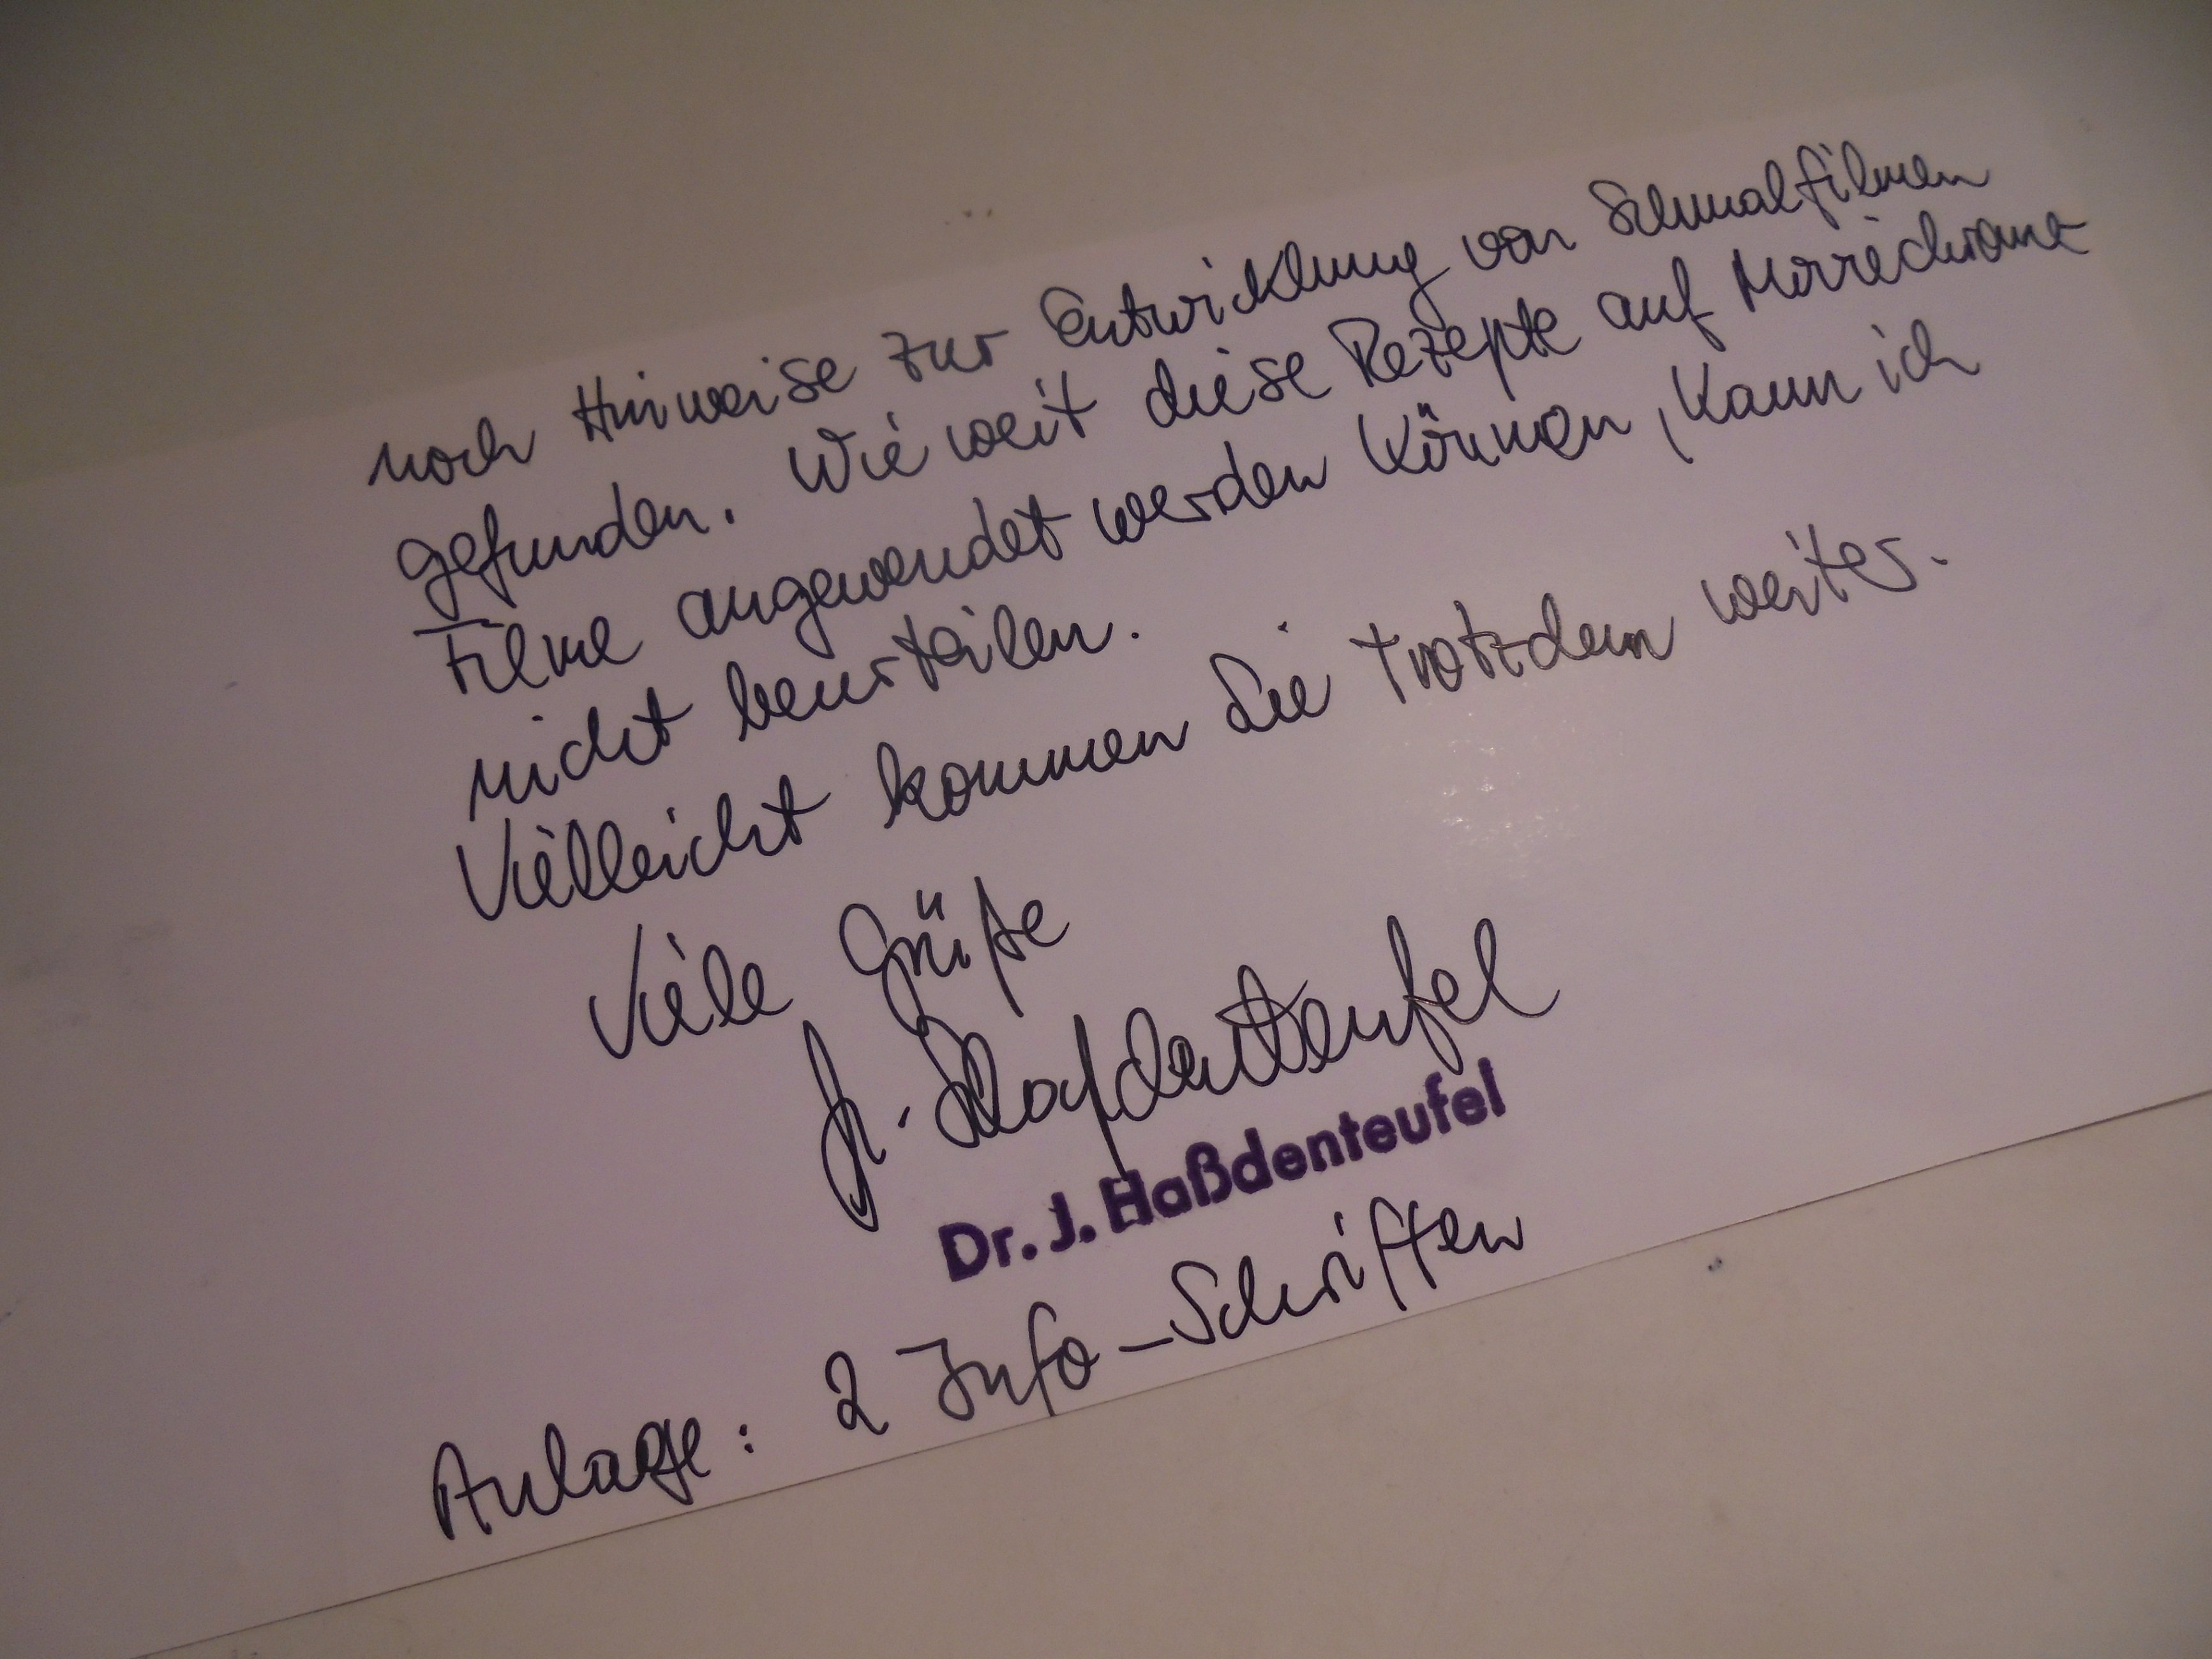 noch Hinweise zur Entwicklung von Schmalfilmen
gefunden. Wie weit diese Rezepte auf Moviechrome
Filme angewendet werden können, kann ich
nicht beurteilen.
Vielleicht kommen Sie trotzdem weiter.
Viele Grüße
J. Haßdenteufel
Dr. J. Haßdenteufel
Anlage: 2 Info-Schriften